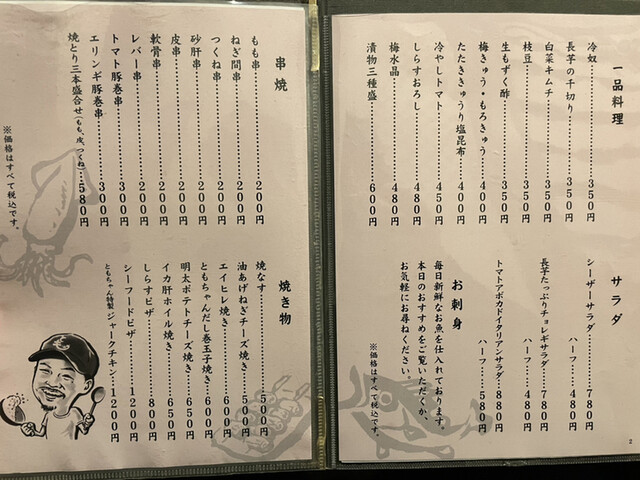 一品料理
冷奴…………350円
長芋の千切り…………350円
白菜キムチ…………350円
枝豆…………350円
生もずく酢…………350円
梅きゅう・もろきゅう…………400円
たたききゅうり塩昆布…………400円
冷やしトマト…………450円
しらすおろし…………480円
梅水晶…………480円
漬物三種盛…………600円
サラダ
シーザーサラダ…………780円
ハーフ…………480円
長芋たっぷりチョレギサラダ…………780円
ハーフ…………480円
トマトアボカドイタリアンサラダ…………880円
ハーフ…………580円
お刺身
毎日新鮮なお魚を仕入れております。
本日のおすすめをご覧いただくか、
お気軽にお尋ねください。
※価格はすべて税込です。
2
串焼
もも串…………200円
ねぎ間串…………200円
つくね串…………200円
砂肝串…………200円
皮串…………200円
軟骨串…………200円
レバー串…………200円
トマト豚巻串…………300円
エリンギ豚巻串…………300円
焼とり三本盛合せ(もも、皮、つくね)…580円
※価格はすべて税込です。
焼き物
焼なす…………500円
油あげねぎチーズ焼き…………500円
エイヒレ焼き…………600円
ともちゃんだし巻玉子焼き…………600円
明太ポテトチーズ焼き…………650円
イカ肝ホイル焼き…………650円
しらすピザ…………800円
シーフードピザ…………1200円
ともちゃん特製 ジャークチキン…………1200円